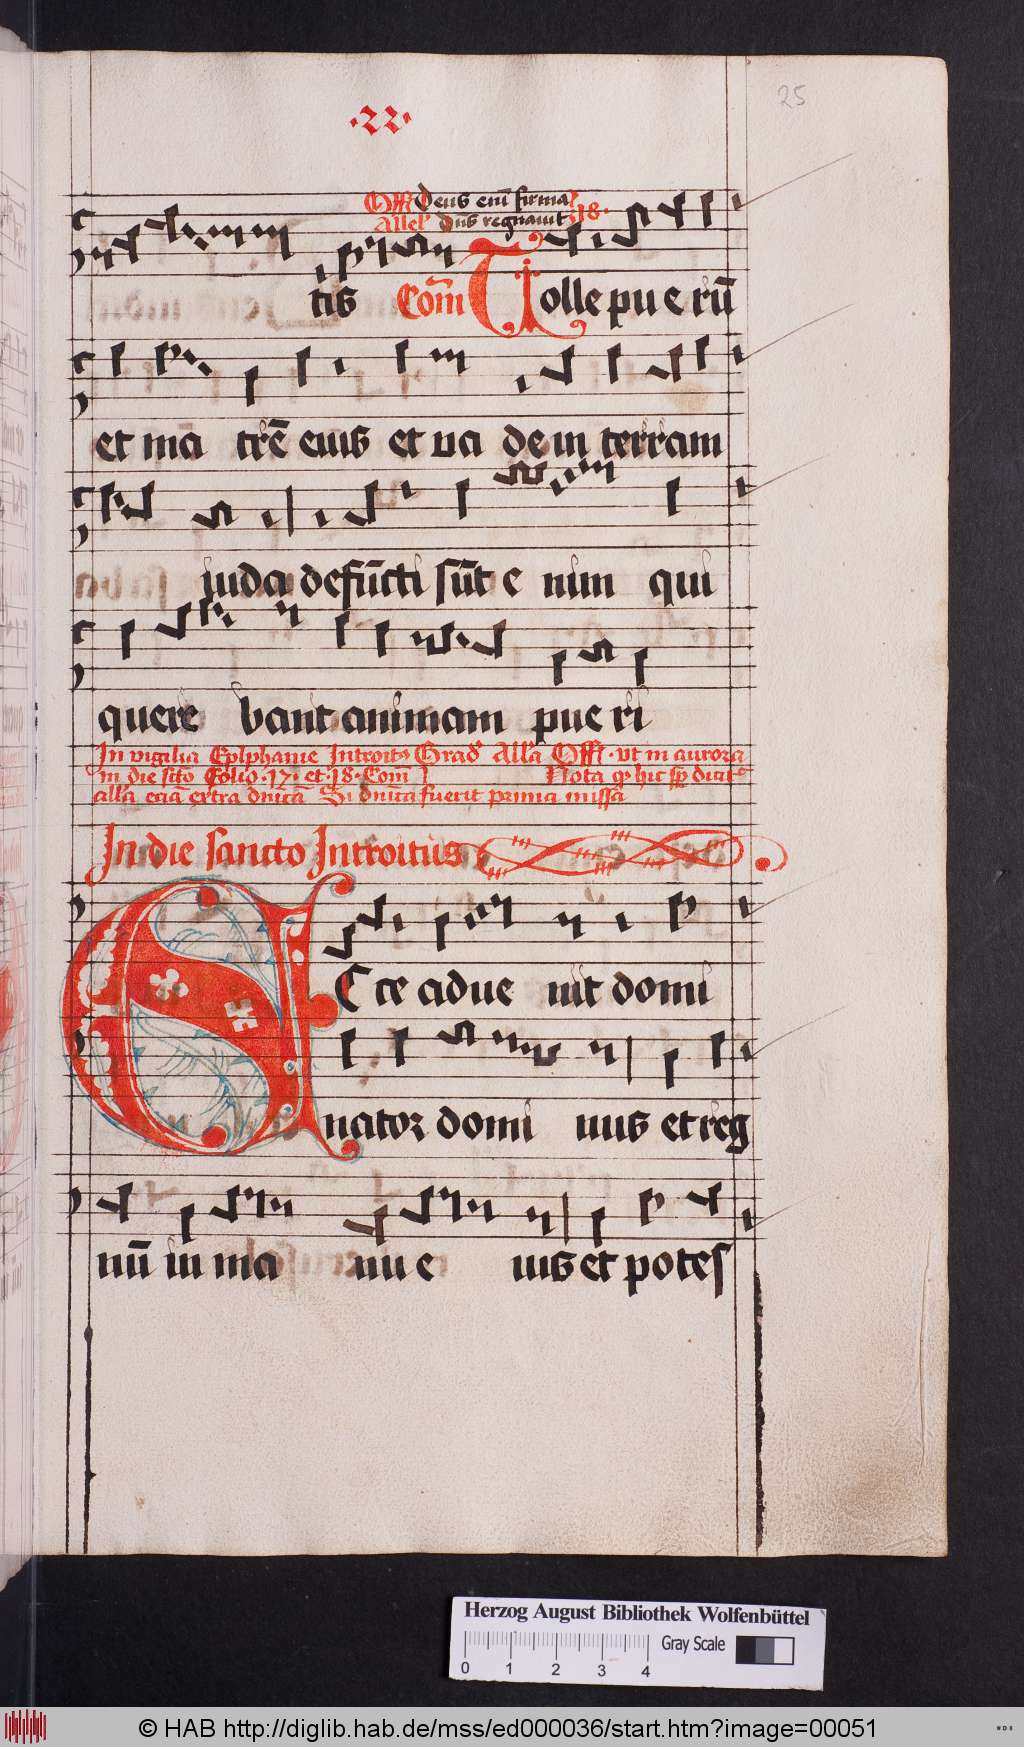 ·22·
25
Off Deus eni firma
Allel' dns regnauit 18·
tis Com Tolle pu e rū
et ma trē eius et ua de in terram
iuda defūcti sūt e nim qui
quere bant animam pue ri
In vigilia Epiphanie Introit9 Grad' All'a Off · vt in aurora
in die scto Folio · 17 · et · 18 · Com
Nota hic dicit
alla eciā extra dnicā Si dnica fuerit prima missa
In die sancto Introitus
Ecce adue nit domi
nator domi nus et reg
nū in ma nu e ius et potes
Herzog August Bibliothek Wolfenbüttel
Gray Scale
0 1 2 3 4
© HAB http://diglib.hab.de/mss/ed000036/start.htm?image=00051